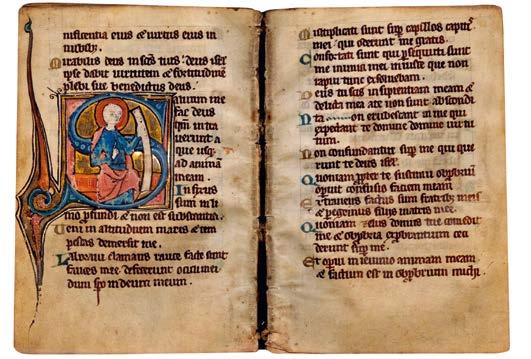 nificentia eius & virtus eius in
nubibus
Mirabilis deus in scis suis: deus isrl
ipse dabit virtutem & fortitudinē
plebi sue benedictus deus.
Saluum me
fac deus
qm̄ intra
uerunt a
que usq;
ad animā
meam.
Infixus
sum in li
mo pfundi & non est substantia.
Ueni in altitudinem maris & tem
pestas demersit me.
Laboraui clamans rauce facte sunt
fauces mee defecerunt oculi mei
dum spo in deum meum.
Multiplicati sunt sup capillos capitis
mei qui oderunt me gratis.
Confortati sunt qui persecuti sunt
me inimici mei iniuste que non
rapui tunc exsoluebam.
Deus tu scis insipientiam meam &
delicta mea a te non sunt abscondita
Non erubescant in me qui
expectant te domine domine uirtu
tum.
Non confundantur sup me qui que
runt te deus isrl.
Quoniam propter te sustinui obprobriū
operuit confusio faciem meam.
Extraneus factus sum fratribus meis
& peregrinus filiis matris mee.
Quoniam zelus domus tue comedit
me & obprobria exprobrantium tibi ceci
derunt sup me.
Et operui in ieiunio animam meam
& factum est in obprobrium michi